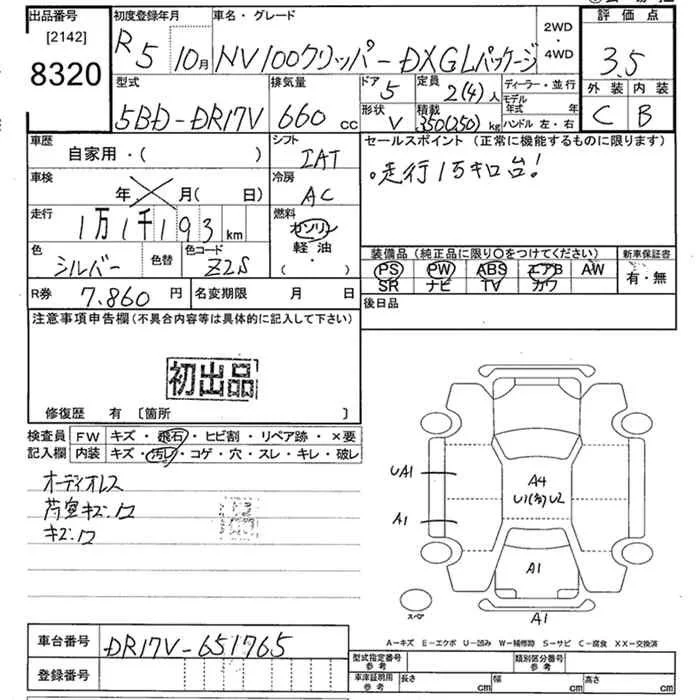 出品番号 初度登録年月 車名・グレード 2WD・4WD 評価点
[2142]
8320 R5 10月 NV100クリッパー DXGLパッケージ 3.5
外装 内装
C B
型式 排気量 ドア 定員 ディーラー・並行
5BD-DR17V 660 cc 5 2(4)人 モデル年式 年
形状 積載 ハンドル 左・右
V 350(250)kg
車歴 シフト セールスポイント (正常に機能するものに限ります)
自家用・( ) IAT
。走行1万キロ台!
車検 冷房
年 月( 日) AC
走行 燃料
1万1千193 km ガソリン
軽油
・( )
色 色替 色コード
シルバー Z2S
装備品 (純正品に限り〇をつけてください) 新車保証書
PS PW ABS エアB AW 有・無
SR ナビ TV カワ
R券 7,860円 名変期限 月 日 後日品
注意事項申告欄(不具合内容等は具体的に記入して下さい)
初出品
修復歴 有 [箇所 ]
検査員 FW キズ・飛石・ヒビ割・リペア跡・×要
記入欄 内装 キズ・汚レ・コゲ・穴・スレ・キレ・破レ
オーディオレス
荷室キズ.凹
キズ.凹
UA1
A4
U1(多)U2
A1
A1
スペア
A1
A-キズ E-エクボ U-凹み W-補修跡 S-サビ C-腐食 XX-交換済
車台番号 DR17V-651765
登録番号
型式指定番号参考 類別区分番号
車庫証明用参考 長さ cm 幅 cm 高さ cm